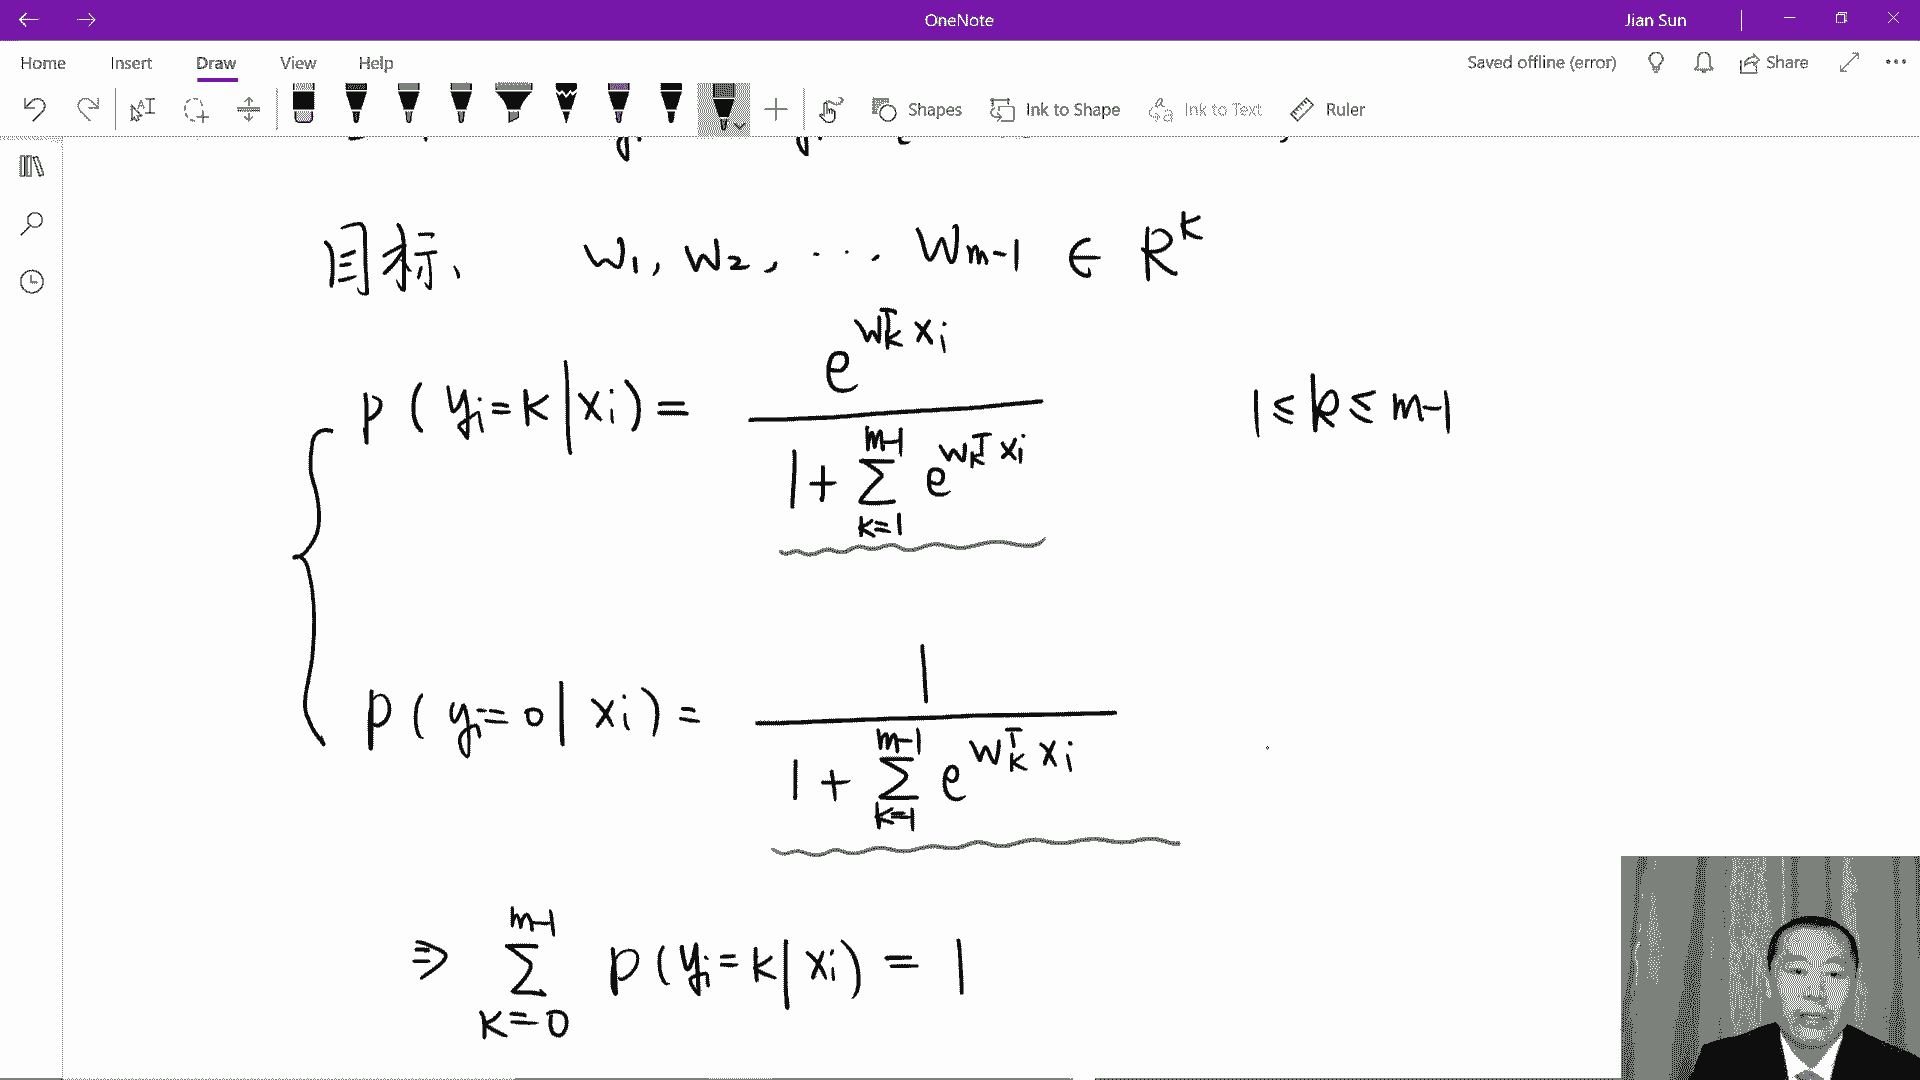 OneNote
Jian Sun
Home Insert Draw View Help
Saved offline (error) Share
Shapes Ink to Shape Ink to Text Ruler
目标、 w₁, w₂, ··· w_{m-1} ∈ R^k
p(y_i=k|x_i) = e^{w_k^T x_i} / (1+∑_{k=1}^{m-1} e^{w_k^T x_i}) 1≤k≤m-1
p(y_i=0|x_i) = 1 / (1+∑_{k=1}^{m-1} e^{w_k^T x_i})
⇒ ∑_{k=0}^{m-1} p(y_i=k|x_i) = 1